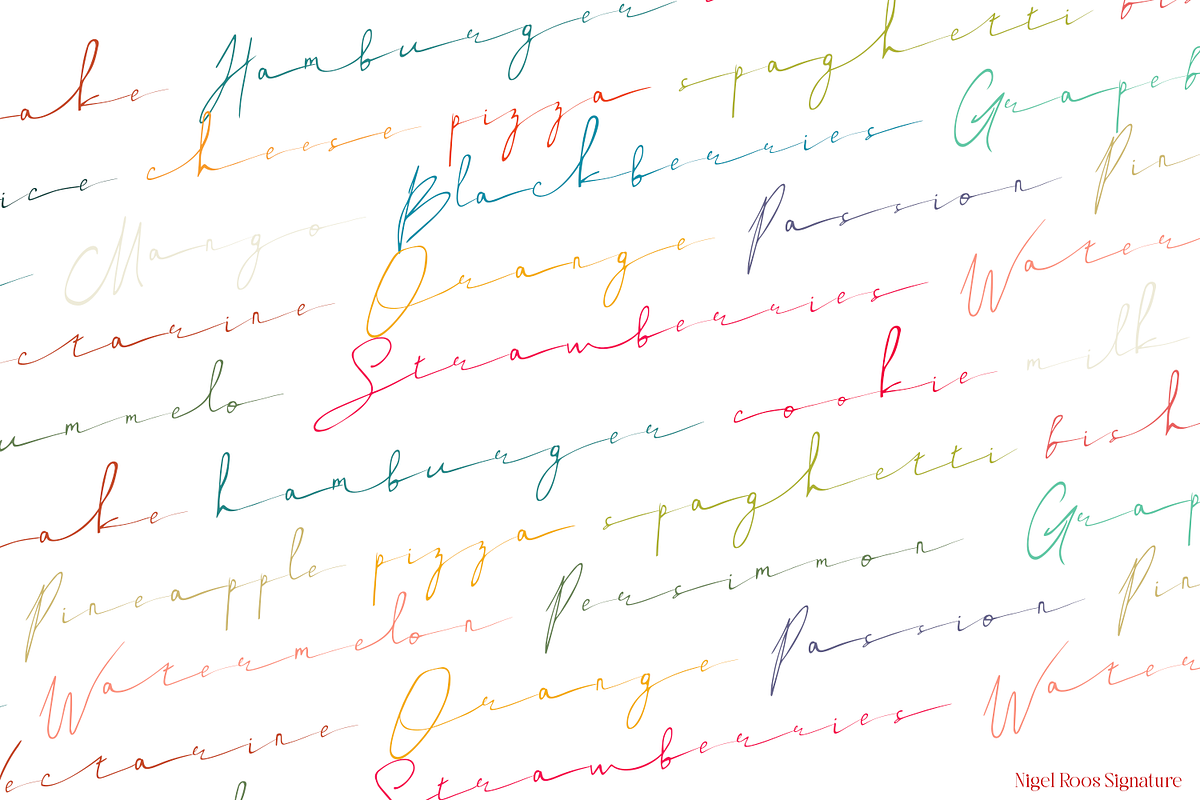 ake Hamburger
ice cheese pizza spaghetti bis
Mango Blackberries Grapef
ctarine Orange Passion Pin
ummelo Strawberries Water
ake hamburger cookie milk
Pineapple pizza spaghetti bish
Watermelon Persimmon Grap
ectarine Orange Passion Pin
Strawberries Water
Nigel Roos Signature